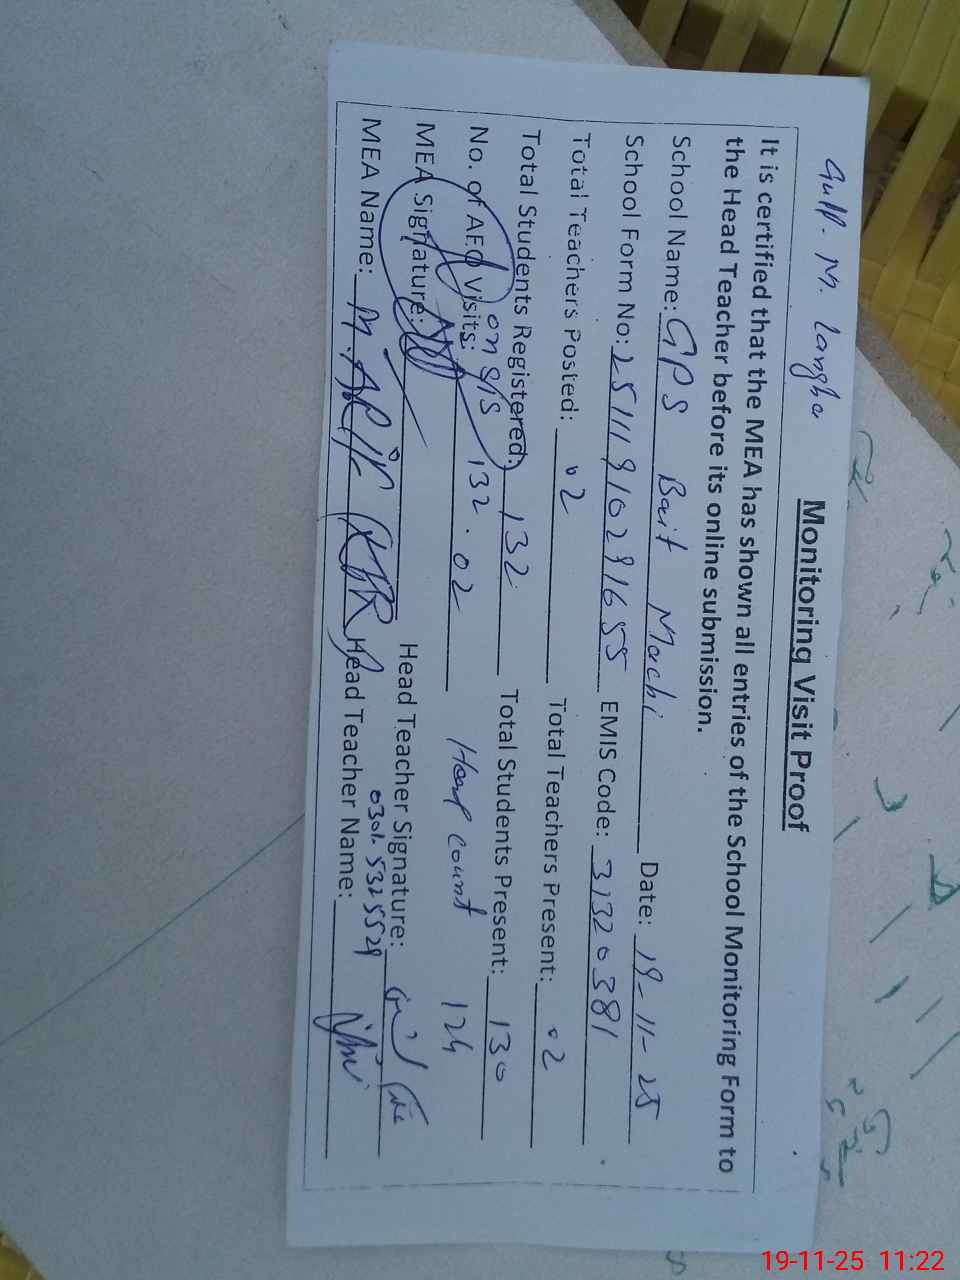 Monitoring Visit Proof
It is certified that the MEA has shown all entries of the School Monitoring Form to
the Head Teacher before its online submission.
School Name: GPS Bait Machi Date: 19-11-25
School Form No: 2511191029 1655 EMIS Code: 31320381
Total Teachers Posted: 02 Total Teachers Present: 02
Total Students Registered: 132 Total Students Present: 130
on SIS 132
No. of AEO Visits: 02 Head Count 124
MEA Signature: Head Teacher Signature:
0301-5325529
MEA Name: M. ARIF Head Teacher Name:
19-11-25 11:22